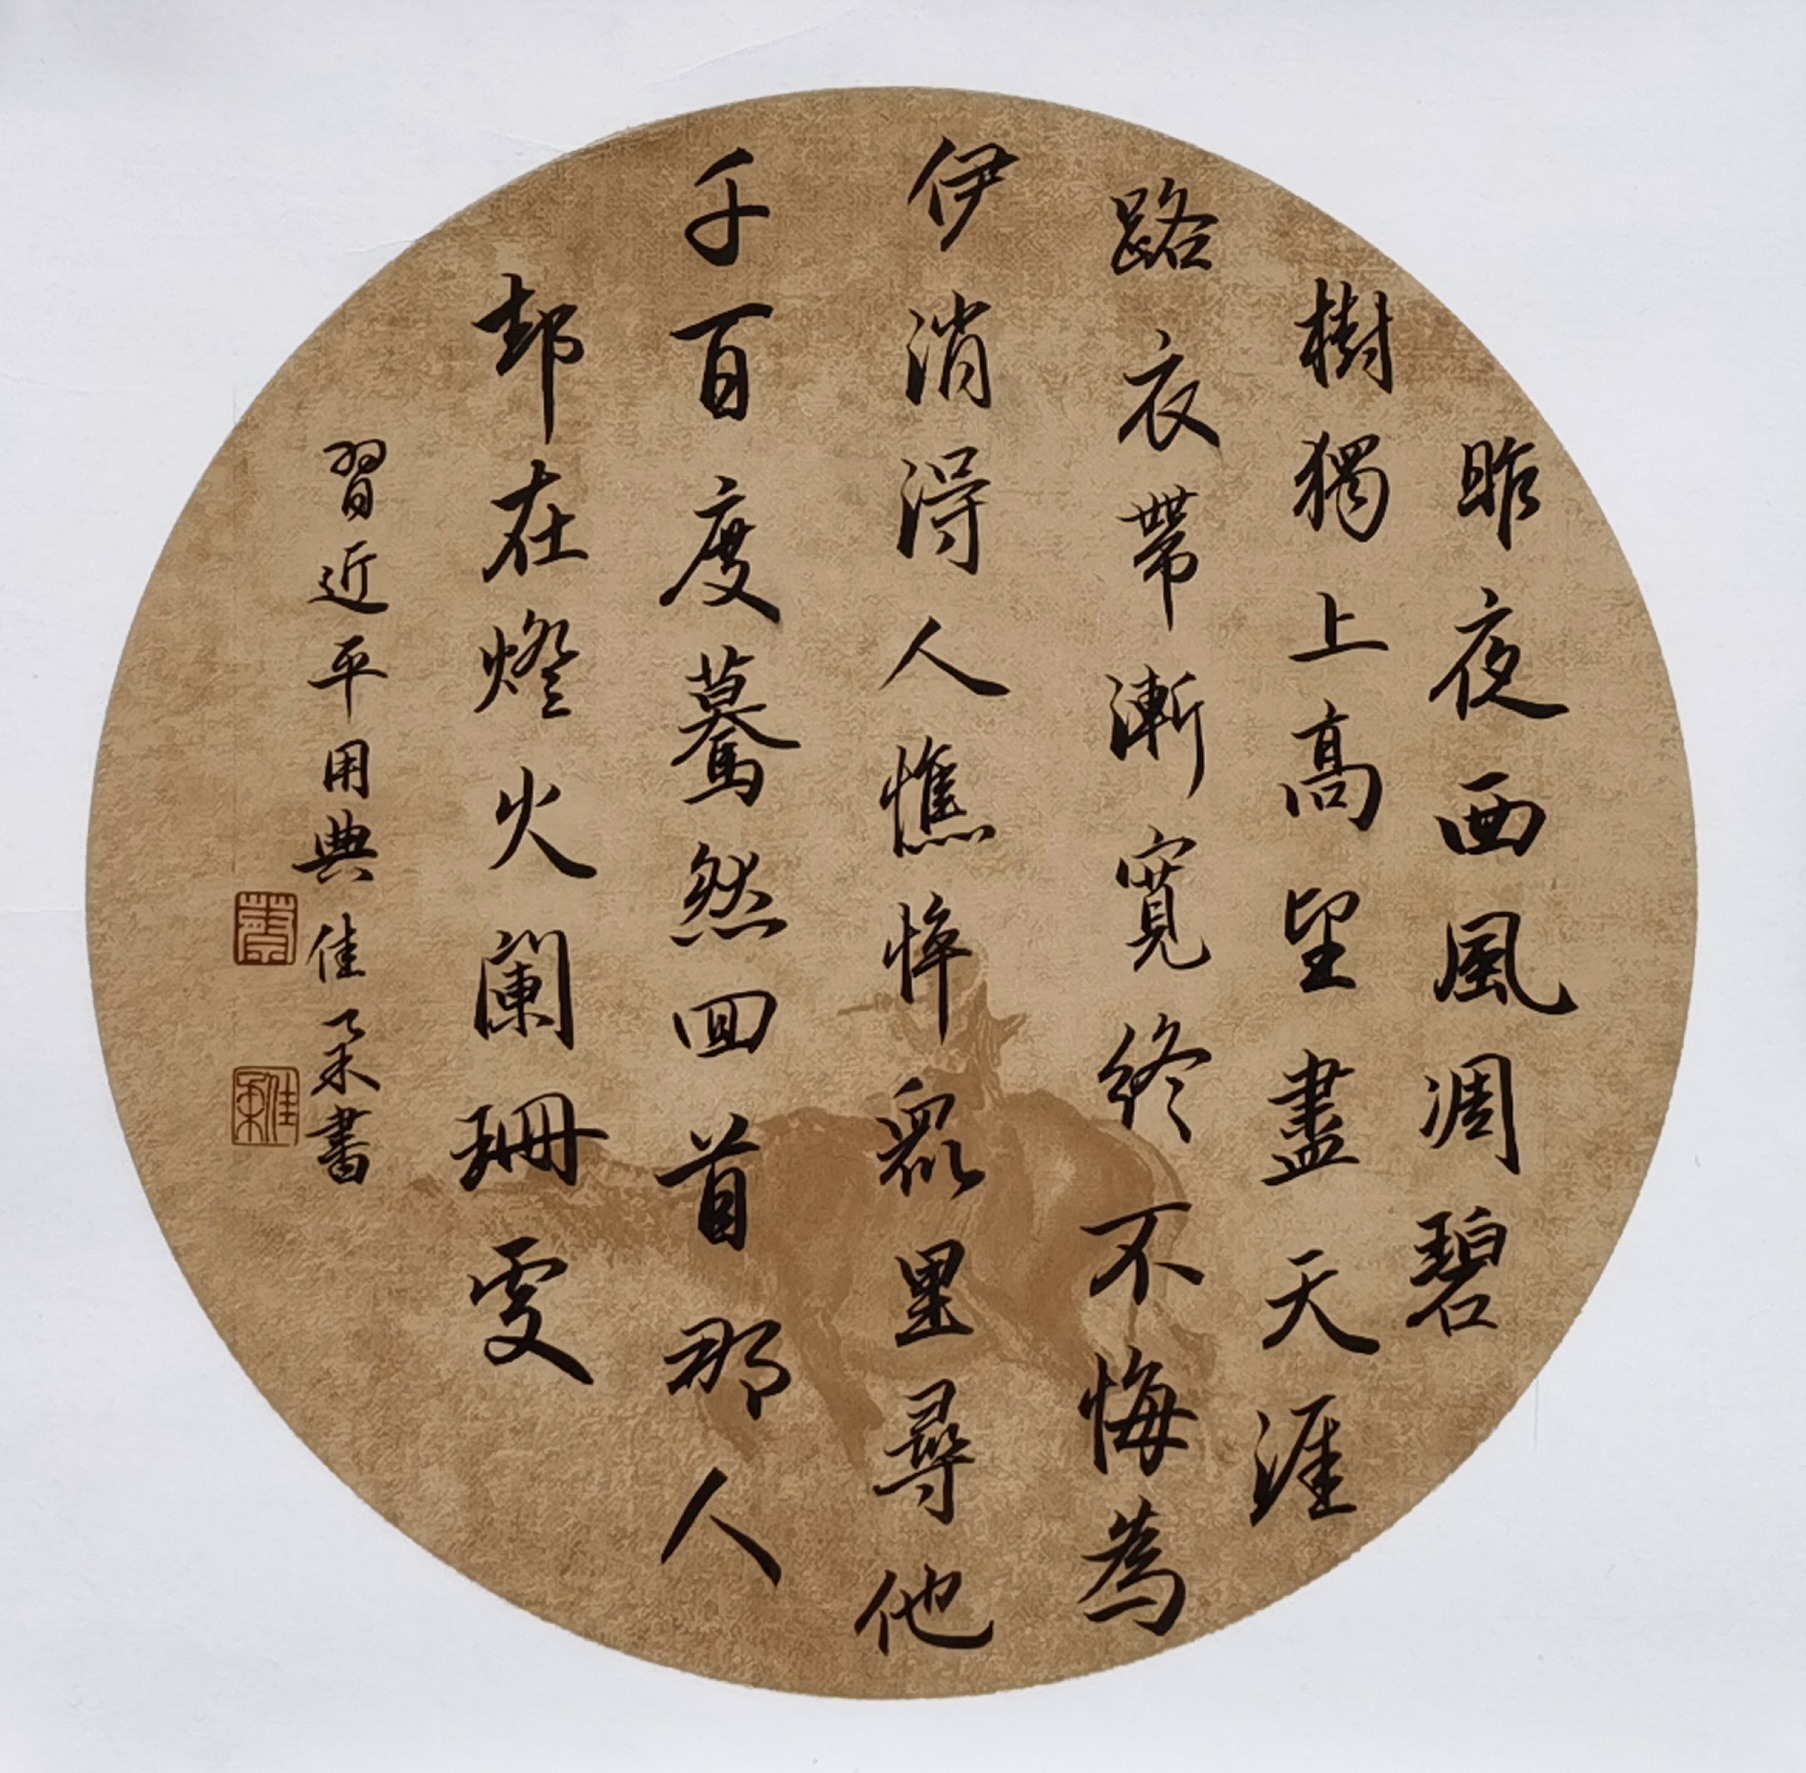 昨夜西風凋碧
樹獨上高望盡天涯
路衣帶漸寬終不悔為
伊消得人憔悴眾里尋他
千百度驀然回首那人
却在燈火闌珊處
習近平用典佳柔書
佳柔